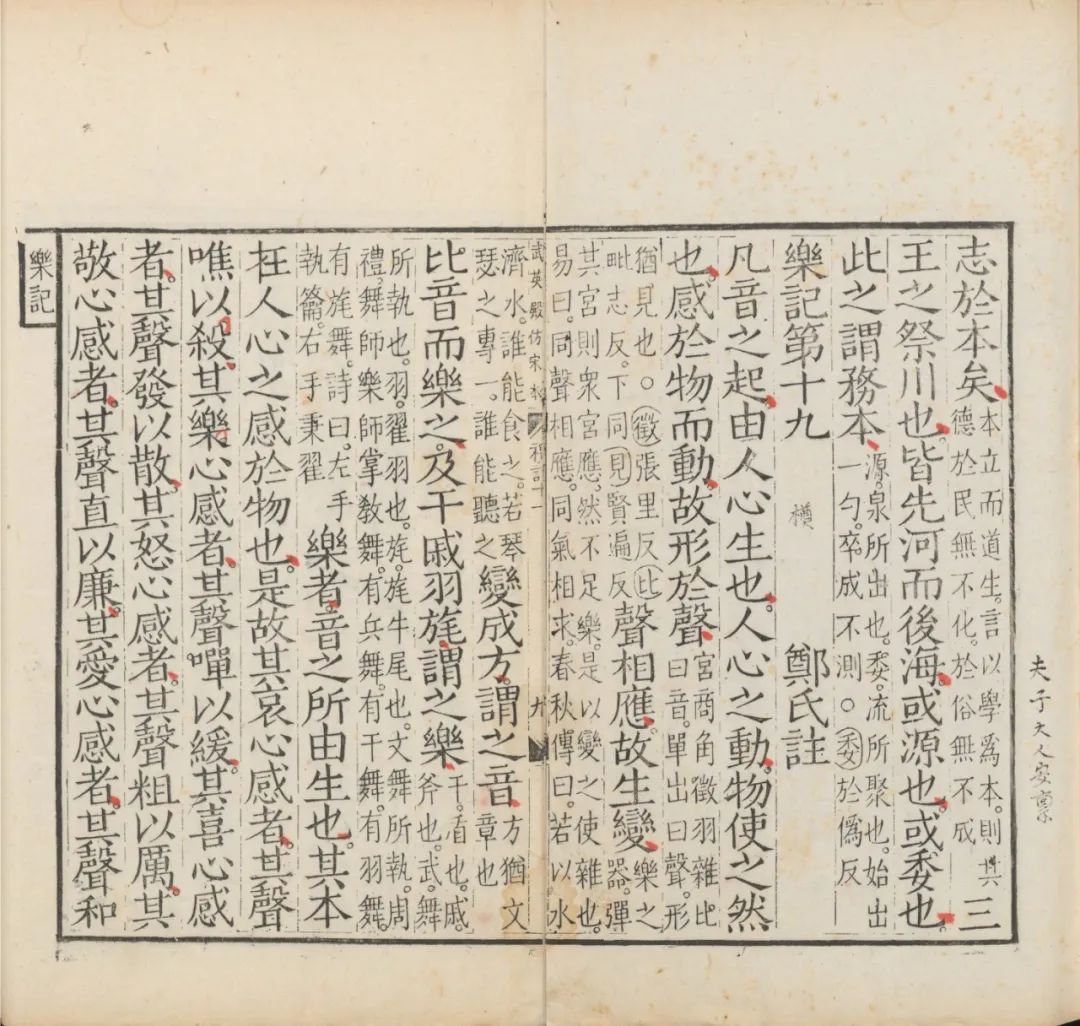 夫子大人安稟
志於本矣。本立而道生。言以學爲本。則其德於民無不化。於俗無不成三
王之祭川也。皆先河而後海。或源也。或委也。
此之謂務本。源泉所出也。委流所聚也。始出一勺。卒成不測。○委於僞反
樂記第十九 鄭氏註
凡音之起。由人心生也。人心之動。物使之然
也。感於物而動。故形於聲。宮商角徵羽雜比曰音。單出曰聲。形
猶見也。○徵張里反比毗志反。下同見賢遍反聲相應。故生變。樂之器。彈
其宮則衆宮應。然不足樂。是以變之使雜也。易曰。同聲相應。同氣相求。春秋傳曰。若以水
武英殿仿宋本 禮記十一 九
濟水。誰能食之。若琴瑟之專一。誰能聽之變成方。謂之音。方猶文章也
比音而樂之。及干戚羽旄。謂之樂。干。盾也。戚。斧也。武舞
所執也。羽。翟羽也。旄。旄牛尾也。文舞所執。周禮。舞師樂師掌敎舞。有兵舞。有干舞。有羽舞。
有旄舞。詩曰。左手執籥。右手秉翟樂者。音之所由生也。其本
在人心之感於物也。是故其哀心感者。其聲
噍以殺。其樂心感者。其聲嘽以緩。其喜心感
者。其聲發以散。其怒心感者。其聲粗以厲。其
敬心感者。其聲直以廉。其愛心感者。其聲和
樂記